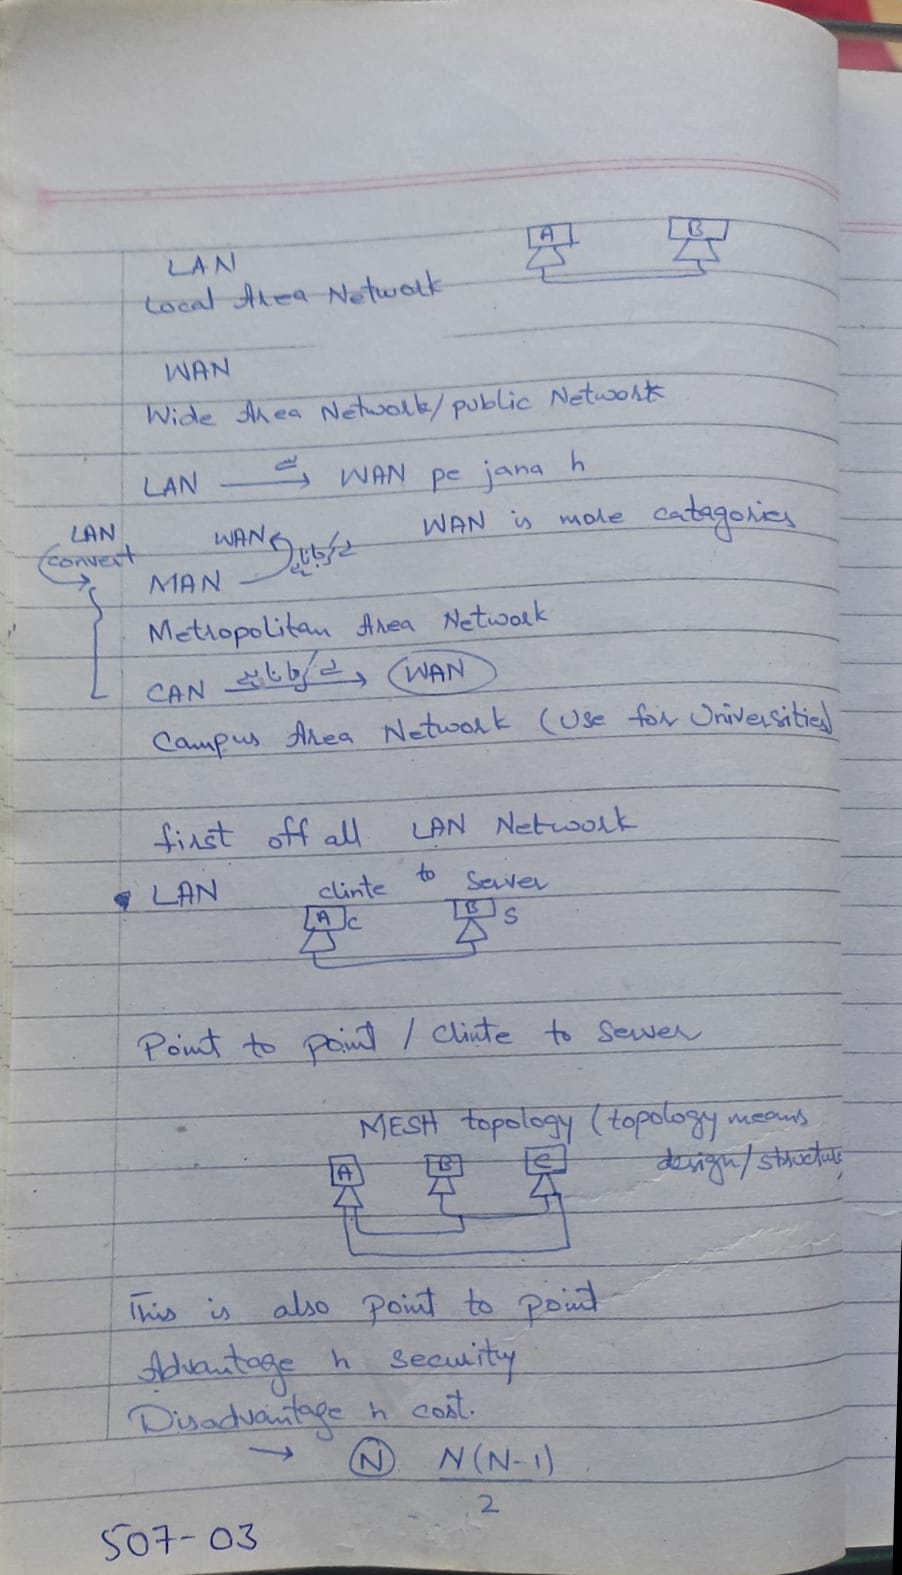 LAN
A B
Local Area Network
WAN
Wide Area Network/public Network
LAN سے → WAN pe jana h
WAN is more catagories
LAN
convert
WAN
MAN
Metropolitan Area Network
CAN → WAN
Campus Area Network (Use for Universities)
first off all LAN Network
• LAN clinte to Server
A C B S
Point to point / Clinte to Server
MESH topology (topology means
design/structure
A B C
This is also point to point
Advantage h security
Disadvantage h cost.
→ N N(N-1)
2
507-03